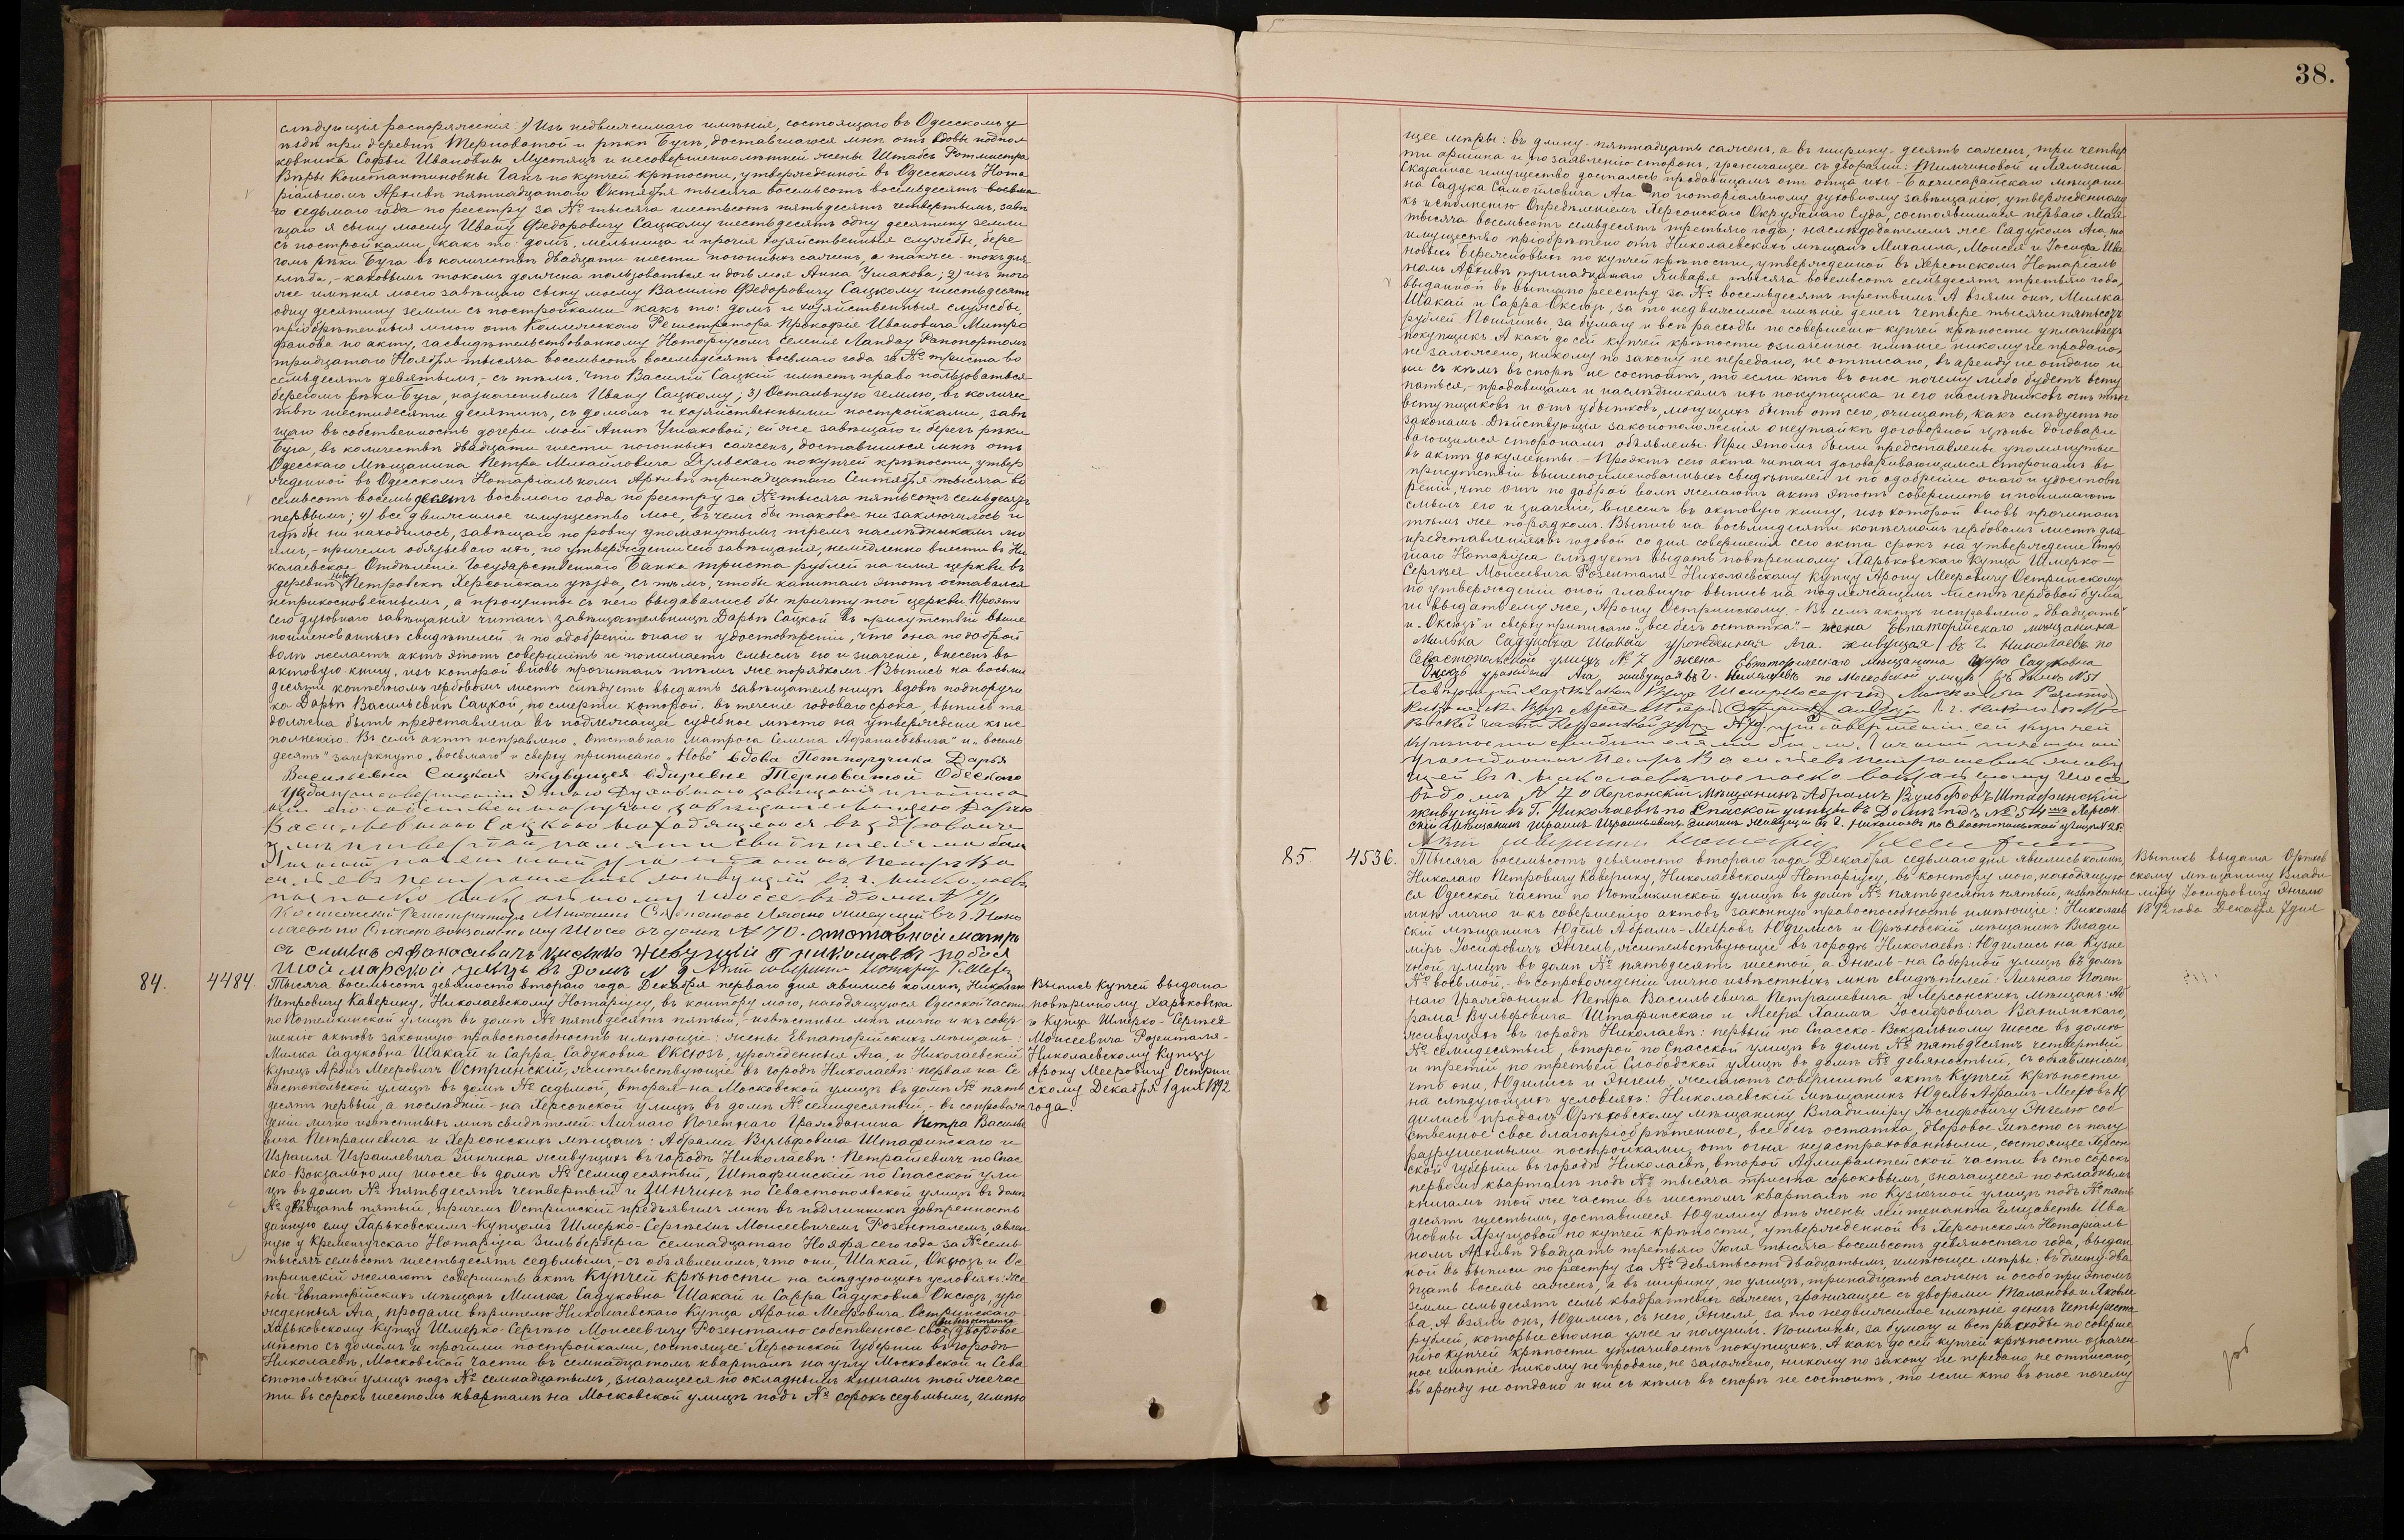 38.
слѣдующія распоряженія: 1) Изъ недвижимаго имѣнія, состоящаго въ Одесскомъ у
ѣздѣ при деревнѣ Терноватой и рѣкѣ Бугѣ, доставшагося мнѣ отъ вдовы подпол
ковника Софьи Ивановны Мустяцъ и несовершеннолѣтней жены Штабсъ Ротмистра
Вѣры Константиновны Ганъ по купчей крѣпости, утвержденной въ Одесскомъ Нота
ріальномъ Архивѣ пятнадцатаго Октября тысяча восемьсотъ восемьдесятъ восьма
го седьмаго года по реестру за № тысяча шестьсотъ пятьдесятъ четвертымъ, завѣ
щаю я сыну моему Ивану Федоровичу Сацкому шестьдесятъ одну десятину земли
съ постройками, какъ то: домъ, мельница и прочія хозяйственныя службы, бере
гомъ рѣки Буга въ количествѣ двадцати шести погонныхъ саженъ, а также - токъ для
хлѣба, - каковымъ токомъ должна пользоваться и дочь моя Анна Ушакова; 2) изъ того
же имѣнія моего завѣщаю сыну моему Василію Федоровичу Сацкому шестьдесятъ
одну десятину земли съ постройками какъ то: домъ и хозяйственныя службы,
пріобрѣтенныя мною отъ Коллежскаго Регистратора Прокофія Ивановича Митро
фанова по акту, засвидѣтельствованному Нотаріусомъ селенія Ландау Рапопортомъ
тридцатаго Ноября тысяча восемьсотъ восемьдесятъ восьмаго года за № триста во
семьдесятъ девятымъ, - съ тѣмъ, что Василій Сацкій имѣетъ право пользоваться
берегомъ рѣки Буга, назначеннымъ Ивану Сацкому; 3) Остальную землю, въ количес
твѣ шестидесяти десятинъ, съ домомъ и хозяйственными постройками, завѣ
щаю въ собственность дочери моей Аннѣ Ушаковой; ей же завѣщаю и берегъ рѣки
Буга, въ количествѣ двадцати шести погонныхъ саженъ, доставшихся мнѣ отъ
Одесскаго Мѣщанина Петра Михайловича Дульскаго по купчей крѣпости, утвер
жденной въ Одесскомъ Нотаріальномъ Архивѣ тринадцатаго Сентября тысяча во
семьсотъ восемьдесятъ восьмаго года по реестру за № тысяча пятьсотъ семьдесятъ
первымъ; 4) все движимое имущество мое, въ чемъ бы таковое ни заключалось и
гдѣ бы ни находилось, завѣщаю по ровну упомянутымъ тремъ наслѣдникамъ мо
имъ, - причемъ обязываю ихъ, по утвержденіи сего завѣщанія, немедленно внести въ Ни
колаевское Отдѣленіе Государственнаго Банка триста рублей на имя церкви въ
деревнѣ Ново Петровскѣ Херсонскаго уѣзда, съ тѣмъ, чтобы капиталъ этотъ оставался
неприкосновеннымъ, а проценты съ него выдавались бы причту той церкви. Проэктъ
сего духовнаго завѣщанія читанъ завѣщательницѣ Дарьѣ Сацкой въ присутствіи выше
поименованныхъ свидѣтелей и по одобреніи онаго и удостовѣреніи, что она по доброй
волѣ желаетъ актъ этотъ совершить и понимаетъ смыслъ его и значеніе, внесенъ въ
актовую книгу, изъ которой вновь прочитанъ тѣмъ же порядкомъ. Выпись на восьми
десяти копѣечномъ гербовомъ листѣ слѣдуетъ выдать завѣщательницѣ вдовѣ подпоручи
ка Дарьѣ Васильевнѣ Сацкой, по смерти которой, въ теченіе годоваго срока, выпись та
должна быть представлена въ подлежащее судебное мѣсто на утвержденіе къ ис
полненію. Въ семъ актѣ исправлено „Отставнаго матроса Семена Афанасьевича" и „восемь
десятъ" зачеркнуто „восьмаго" и сверху приписано „Ново" вдова Потпоручика Дарья
Васильевна Сацкая жувущея вдиревне Терноватой Одескаго
Уезда при совершеніи этаго Духовнаго завѣщанія и подписа
ніи его собственноручно завѣщательницею Дарьею
Васильевною Сацкою находящеюся въ здравомъ
умѣ и твердой памяти свидѣтелями были
Личный почетный гражданинъ Петръ Ва
сильевъ Петрашевичъ живущій въ г. Николаевѣ
по Спаско Вокзальному шоссе въ домѣ № 70
живущій въ г. Нико
лаевѣ по Спаско вокзальному Шоссе въ домѣ № 70. отставной матро
съ Семенъ Афонасивичъ Живущій Г Николаевѣ
Марской улицѣ въ Домѣ № 9 Актъ совершилъ Нотаріусъ
84. 4484. Тысяча восемьсотъ девяносто втораго года Декабря перваго дня явились ко мнѣ, Николаю
Петровичу Каверину, Николаевскому Нотаріусу, въ контору мою, находящуюся Одесской части
по Потемкинской улицѣ въ домѣ № пятьдесятъ пятый, - извѣстные мнѣ лично и къ совер
шенію актовъ законную правоспособность имѣющіе: жены Евпаторійскихъ мѣщанъ:
Милка Садуковна Шакай и Сарра Садуковна Оксюзъ, урожденныя Ага, и Николаевскій
Купецъ Аронъ Мееровичъ Остринскій, жительствующіе въ городѣ Николаевѣ: первая на Се
вастопольской улицѣ въ домѣ № седьмой, вторая - на Московской улицѣ въ домѣ № пять
десятъ первый, а послѣдній - на Херсонской улицѣ въ домѣ № семидесятый, - въ сопровож
деніи лично извѣстныхъ мнѣ свидѣтелей: Личнаго Почетнаго Гражданина Петра Василье
вича Петрашевича и Херсонскихъ мѣщанъ: Абрама Вульфовича Штафинскаго и
Израиля Израилевича Зинчина живущихъ въ городѣ Николаевѣ: Петрашевичъ по Спас
ско-Вокзальному шоссе въ домѣ № семидесятый, Штафинскій по Спасской ули
цѣ въ домѣ № пятьдесятъ четвертый и Зинчинъ по Севастопольской улицѣ въ домѣ
№ двадцать пятый, причемъ Остринскій предъявилъ мнѣ въ подлинникѣ довѣренность
данную ему Харьковскимъ купцомъ Шмерко-Сергѣемъ Моисеевичемъ Розенталемъ, явлен
ную у Кременчугскаго Нотаріуса Зильберберга семнадцатаго Ноября сего года за № семь
тысячъ семьсотъ шестьдесятъ седьмымъ, - съ объявленіемъ, что они, Шакай, Оксюзъ и Ос
тринскій желаютъ совершить актъ купчей крѣпости на слѣдующихъ условіяхъ: Же
ны Евпаторійскихъ мѣщанъ Милка Садуковна Шакай и Сарра Садуковна Оксюзъ, уро
жденныя Ага, продали вѣрителю Николаевскаго Купца Арона Мееровича Остринскаго
Харьковскому купцу Шмерко-Сергѣю Моисеевичу Розенталю собственное свое все безъ остатка дворовое
мѣсто съ домомъ и прочими постройками, состоящее Херсонской Губерніи въ городѣ
Николаевѣ, Московской части въ семнадцатомъ кварталѣ на углу Московской и Сева
стопольской улицъ подъ № семнадцатымъ, значащееся по окладнымъ книгамъ той же час
ти въ сорокъ шестомъ кварталѣ на Московской улицѣ подъ № сорокъ седьмымъ, имѣю
Выпись купчей выдана
повѣренному Харьковска
го Купца Шмерко-Сергѣя
Моисеевича Розенталя -
Николаевскому Купцу
Арону Мееровичу Острин
скому Декабря 1 дня 1892
года.
щее мѣры: въ длину - пятнадцать саженъ, а въ ширину - десять саженъ, три четвер
ти аршина и, по заявленію сторонъ, граничащее съ дворами: Тимчиновой и Лямзина
Сказанное имущество досталось продавщицамъ отъ отца ихъ - Бахчисарайскаго мѣщани
на Садука Самойловича Ага по нотаріальному духовному завѣщанію, утвержденному
къ исполненію Опредѣленіемъ Херсонскаго Окружнаго Суда, состоявшимся перваго Мая
тысяча восемьсотъ семьдесятъ третьяго года; наслѣдодателемъ же Садукомъ Ага, то
имущество пріобрѣтено отъ Николаевскихъ мѣщанъ Михаила, Моисея и Іосифа Ива
новыхъ Бережновыхъ по купчей крѣпости, утвержденной въ Херсонскомъ Нотаріаль
номъ Архивѣ тринадцатаго Января тысяча восемьсотъ семьдесятъ третьяго года,
выданной въ выписи по реестру за № восемьдесятъ третьимъ. А взяли онѣ, Милка
Шакай и Сарра Оксюзъ, за то недвижимое имѣніе денегъ четыре тысячи пятьсотъ
рублей. Пошлины, за бумагу и всѣ расходы по совершенію купчей крѣпости уплачиваетъ
покупщикъ. А какъ до сей купчей крѣпости означенное имѣніе никому не продано,
не заложено, никому по закону не передано, не отписано, въ аренду не отдано и
ни съ кѣмъ въ спорѣ не состоитъ, то если кто въ оное почему либо будетъ всту
паться, - продавщицамъ и наслѣдникамъ ихъ покупщика и его наслѣдниковъ отъ тѣхъ
вступщиковъ и отъ убытковъ, могущихъ быть отъ сего, очищать, какъ слѣдуетъ по
законамъ. Дѣйствующія законоположенія о неутайкѣ договорной цѣны договари
вающимся сторонамъ объявлены. При этомъ были представлены упомянутые
въ актѣ документы. - Проэктъ сего акта читанъ договаривающимся сторонамъ въ
присутствіи вышепоименованныхъ свидѣтелей и по одобреніи онаго и удостовѣ
реніи, что они по доброй волѣ желаютъ актъ этотъ совершить и понимаютъ
смыслъ его и значеніе, внесенъ въ актовую книгу, изъ которой вновь прочитанъ
тѣмъ же порядкомъ. Выпись на восьмидесяти копѣечномъ гербовомъ листѣ для
представленія въ годовой со дня совершенія сего акта срокъ на утвержденіе Стар
шаго Нотаріуса слѣдуетъ выдать повѣренному Харьковскаго Купца Шмерко-
Сергѣя Моисеевича Розенталя - Николаевскому Купцу Арону Мееровичу Остринскому
по утвержденіи оной главную выпись на подлежащемъ листѣ гербовой бума
ги выдать ему же, Арону Остринскому. - Въ семъ актѣ исправлено „двадцать"
и „Оксюзъ" и сверху приписано „все безъ остатка." - жена Евпаторійскаго мѣщанина
Милька Садуковна Шакай урожденная Ага. живущая въ г. Николаевѣ по
Севастопольской улицѣ № 7 жена Евпаторическаго Мѣщанина Сарра Садуковна
Оксюзъ урожденая Ага, живущая въ г. Николаевѣ по Московской улицѣ въ домѣ № 51
при совершеніи сей купчей
крѣпости свидѣтелями были: Личный почетный
гражданинъ Петръ Васильевъ Петрашевичъ живу
щій въ г. Николаевѣ по Спаско вокзальному шоссе
въ домѣ № 70 Херсонскій мѣщанинъ Абрамъ Вульфовъ Штафинскій
живущій въ Г. Николаевѣ по Спаской улицѣ въ Домѣ подъ № 54мъ Херсон
скій Мѣщанинъ Израиль Израильевичъ Зинчинъ живущій въ г. Николаевѣ по Севастопольской улицѣ № 25.
Актъ совершилъ Нотаріусъ
85. 4536. Тысяча восемьсотъ девяносто втораго года Декабря седьмаго дня явились ко мнѣ,
Николаю Петровичу Каверину, Николаевскому Нотаріусу, въ контору мою, находящую
ся Одесской части по Потемкинской улицѣ въ домѣ № пятьдесятъ пятый, извѣстные
мнѣ лично и къ совершенію актовъ законную правоспособность имѣющіе: Николаев
скій мѣщанинъ Юдель Абрамъ-Мееровъ Юдилисъ и Орѣховскій мѣщанинъ Влади
міръ Іосифовичъ Энгель, жительствующіе въ городѣ Николаевѣ: Юдилисъ на Кузне
чной улицѣ въ домѣ № пятьдесятъ шестой, а Энгель - на Соборной улицѣ въ домѣ
№ восьмой, - въ сопровожденіи лично извѣстныхъ мнѣ свидѣтелей: Личнаго Почет
наго Гражданина Петра Васильевича Петрашевича и Херсонскихъ мѣщанъ: Аб
рама Вульфовича Штафинскаго и Меера Хаима Іосифовича Ванянскаго,
живущихъ въ городѣ Николаевѣ: первый по Спасско-Вокзальному шоссе въ домѣ
№ семидесятый, второй по Спасской улицѣ въ домѣ № пятьдесятъ четвертый
и третій по третьей Слободской улицѣ въ домѣ № девяностый, съ объявленіемъ,
что они, Юдилисъ и Энгель, желаютъ совершить актъ купчей крѣпости
на слѣдующихъ условіяхъ: Николаевскій мѣщанинъ Юдель Абрамъ-Мееровъ Ю
дилисъ продалъ Орѣховскому мѣщанину Владиміру Іосифовичу Энгелю соб
ственное свое благопріобрѣтенное, все безъ остатка, дворовое мѣсто съ полу
разрушенными постройками, отъ огня незастрахованными, состоящее Херсон
ской губерніи въ городѣ Николаевѣ, второй Адмиралтейской части въ сто сорокъ
первомъ кварталѣ подъ № тысяча триста сороковымъ, значащееся по окладнымъ
книгамъ той же части въ шестомъ кварталѣ по Кузнечной улицѣ подъ № пять
десятъ шестымъ, доставшееся Юдилису отъ жены лейтенанта Елизаветы Ива
новны Хрущовой по купчей крѣпости, утвержденной въ Херсонскомъ Нотаріаль
номъ Архивѣ двадцать третьяго Іюля тысяча восемьсотъ девяностаго года, выдан
ной въ выписи по реестру за № девятьсотъ двадцатымъ, имѣющее мѣры: въ длину два
дцать восемь саженъ, а въ ширину, по улицѣ, тринадцать саженъ и особо при этомъ
земли семьдесятъ семь квадратныхъ саженъ, граничащее съ дворами Таланова и Яковле
ва. А взялъ онъ, Юдилисъ, съ него, Энгеля, за то недвижимое имѣніе денегъ четыреста
рублей, которые сполна уже и получилъ. Пошлины, за бумагу и всѣ расходы по соверше
нію купчей крѣпости уплачиваетъ покупщикъ. А какъ до сей купчей крѣпости означен
ное имѣніе никому не продано, не заложено, никому по закону не передано, не отписано,
въ аренду не отдано и ни съ кѣмъ въ спорѣ не состоитъ, то если кто въ оное почему
Выпись выдана Орѣхов
скому мѣщанину Влади
міру Іосифовичу Энгелю
1892 года Декабря 7 дня